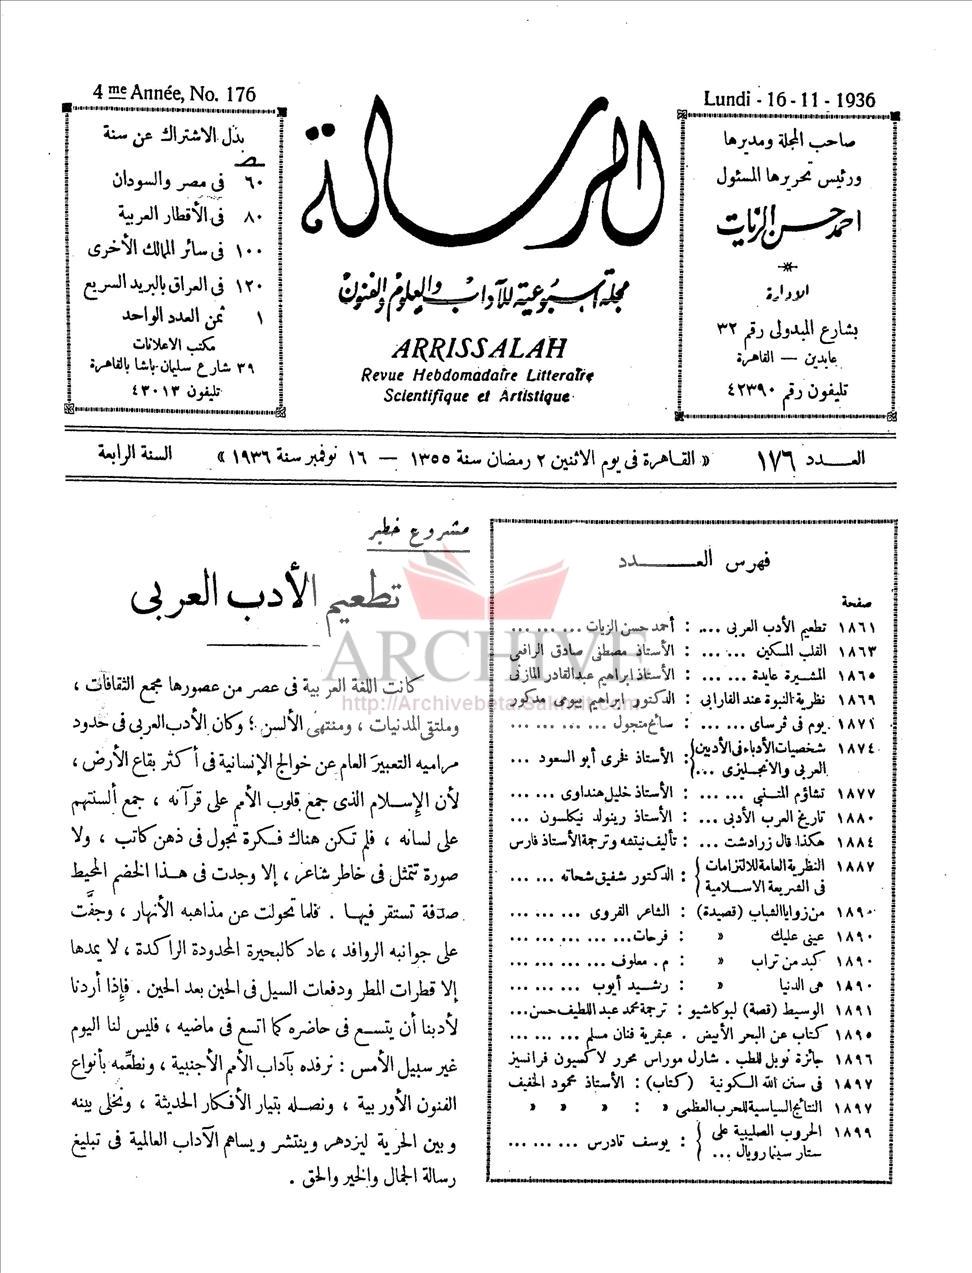 4 me Année, No. 176
Lundi - 16 - 11 - 1936
صاحب المجلة ومديرها
ورئيس تحريرها المسئول
احمد حسن الزيات
الادارة
بشارع المبدولى رقم ٣٢
عابدين — القاهرة
تليفون رقم ٤٢٣٩٠
الرسالة
مجلة أسبوعية للآداب والعلوم والفنون
ARRISSALAH
Revue Hebdomadaire Litteraire
Scientifique et Artistique
بدل الاشتراك عن سنة
٦٠ فى مصر والسودان
٨٠ فى الأقطار العربية
١٠٠ فى سائر الممالك الأخرى
١٢٠ فى العراق بالبريد السريع
١ ثمن العدد الواحد
مكتب الاعلانات
٣٩ شارع سليمان باشا بالقاهرة
تليفون ٤٣٠١٣
العـــدد ١٧٦ « القاهرة فى يوم الاثنين ٢ رمضان سنة ١٣٥٥ — ١٦ نوفمبر سنة ١٩٣٦ » السنة الرابعة
فهرس العـــــدد
صفحة
١٨٦١ تطعيم الأدب العربى ... : أحمد حسن الزيات ... ... ...
١٨٦٣ القلب المسكين ... ... : الأستاذ مصطفى صادق الرافعى
١٨٦٥ المشيرة عايدة ... ... : الأستاذ ابراهيم عبد القادر المازنى
١٨٦٩ نظرية النبوة عند الفارابى : الدكتور ابراهيم بيومى مدكور
١٨٧١ يوم فى فرساى ... ... : سائح متجول ... ... ...
١٨٧٤ شخصيات الأدباء فى الأدبين العربى والانجليزى ... } : الأستاذ فخرى أبو السعود ...
١٨٧٧ تشاؤم المتنبى ... ... : الأستاذ خليل هنداوى ... ...
١٨٨٠ تاريخ العرب الأدبى ... : الأستاذ رينولد نيكلسون ...
١٨٨٤ هكذا قال زرادشت ... : تأليف نيتشه وترجمة الأستاذ فارس
١٨٨٧ النظرية العامة للالتزامات فى الشريعة الاسلامية } : الدكتور شفيق شحاته ... ...
١٨٩٠ من زوايا الشباب (قصيدة) : الشاعر القروى ... ... ...
١٨٩٠ عينى عليك » : فرحات ... ... ... ...
١٨٩٠ كبد من تراب » : م . معلوف ... ... ... ...
١٨٩٠ هى الدنيا » : رشيد أيوب ... ... ...
١٨٩١ الوسيط (قصة) لبوكاشيو : ترجمة محمد عبد اللطيف حسن ...
١٨٩٥ كتاب عن البحر الأبيض . عبقرية فنان مسلم ... ... ...
١٨٩٦ جائزة نوبل للطب . شارل موراس محرر لاكسيون فرانسيز
١٨٩٧ فى سنن الله الكونية (كتاب) : الأستاذ محمود الخفيف
١٨٩٧ النتائج السياسية للحرب العظمى » : » » »
١٨٩٩ الحروب الصليبية على ستار سينما رويال ... } : يوسف تادرس ... ... ...
مشروع خطير
تطعيم الأدب العربى
كانت اللغة العربية فى عصر من عصورها مجمع الثقافات ،
وملتقى المدنيات ، ومنتهى الألسن ؛ وكان الأدب العربى فى حدود
مراميه التعبيرَ العام عن خوالج الإنسانية فى أكثر بقاع الأرض ،
لأن الإسلام الذى جمع قلوب الأمم على قرآنه ، جمع ألسنتهم
على لسانه ، فلم تكن هناك فكرة تجول فى ذهن كاتب ، ولا
صورة تتمثل فى خاطر شاعر ، إلا وجدت فى هذا الخضم المحيط
صدَفة تستقر فيها . فلما تحولت عن مذاهبه الأنهار ، وجفَّت
على جوانبه الروافد ، عاد كالبحيرة المحدودة الراكدة ، لا يمدها
إلا قطرات المطر ودفعات السيل فى الحين بعد الحين . فإذا أردنا
لأدبنا أن يتسع فى حاضره كما اتسع فى ماضيه ، فليس لنا اليوم
غير سبيل الأمس : نرفده بآداب الأمم الأجنبية ، ونطعِّمه بأنواع
الفنون الأوربية ، ونصله بتيار الأفكار الحديثة ، ونخلى بينه
وبين الحرية ليزدهر وينتشر ويساهم الآداب العالمية فى تبليغ
رسالة الجمال والخير والحق .
ARCHIVE